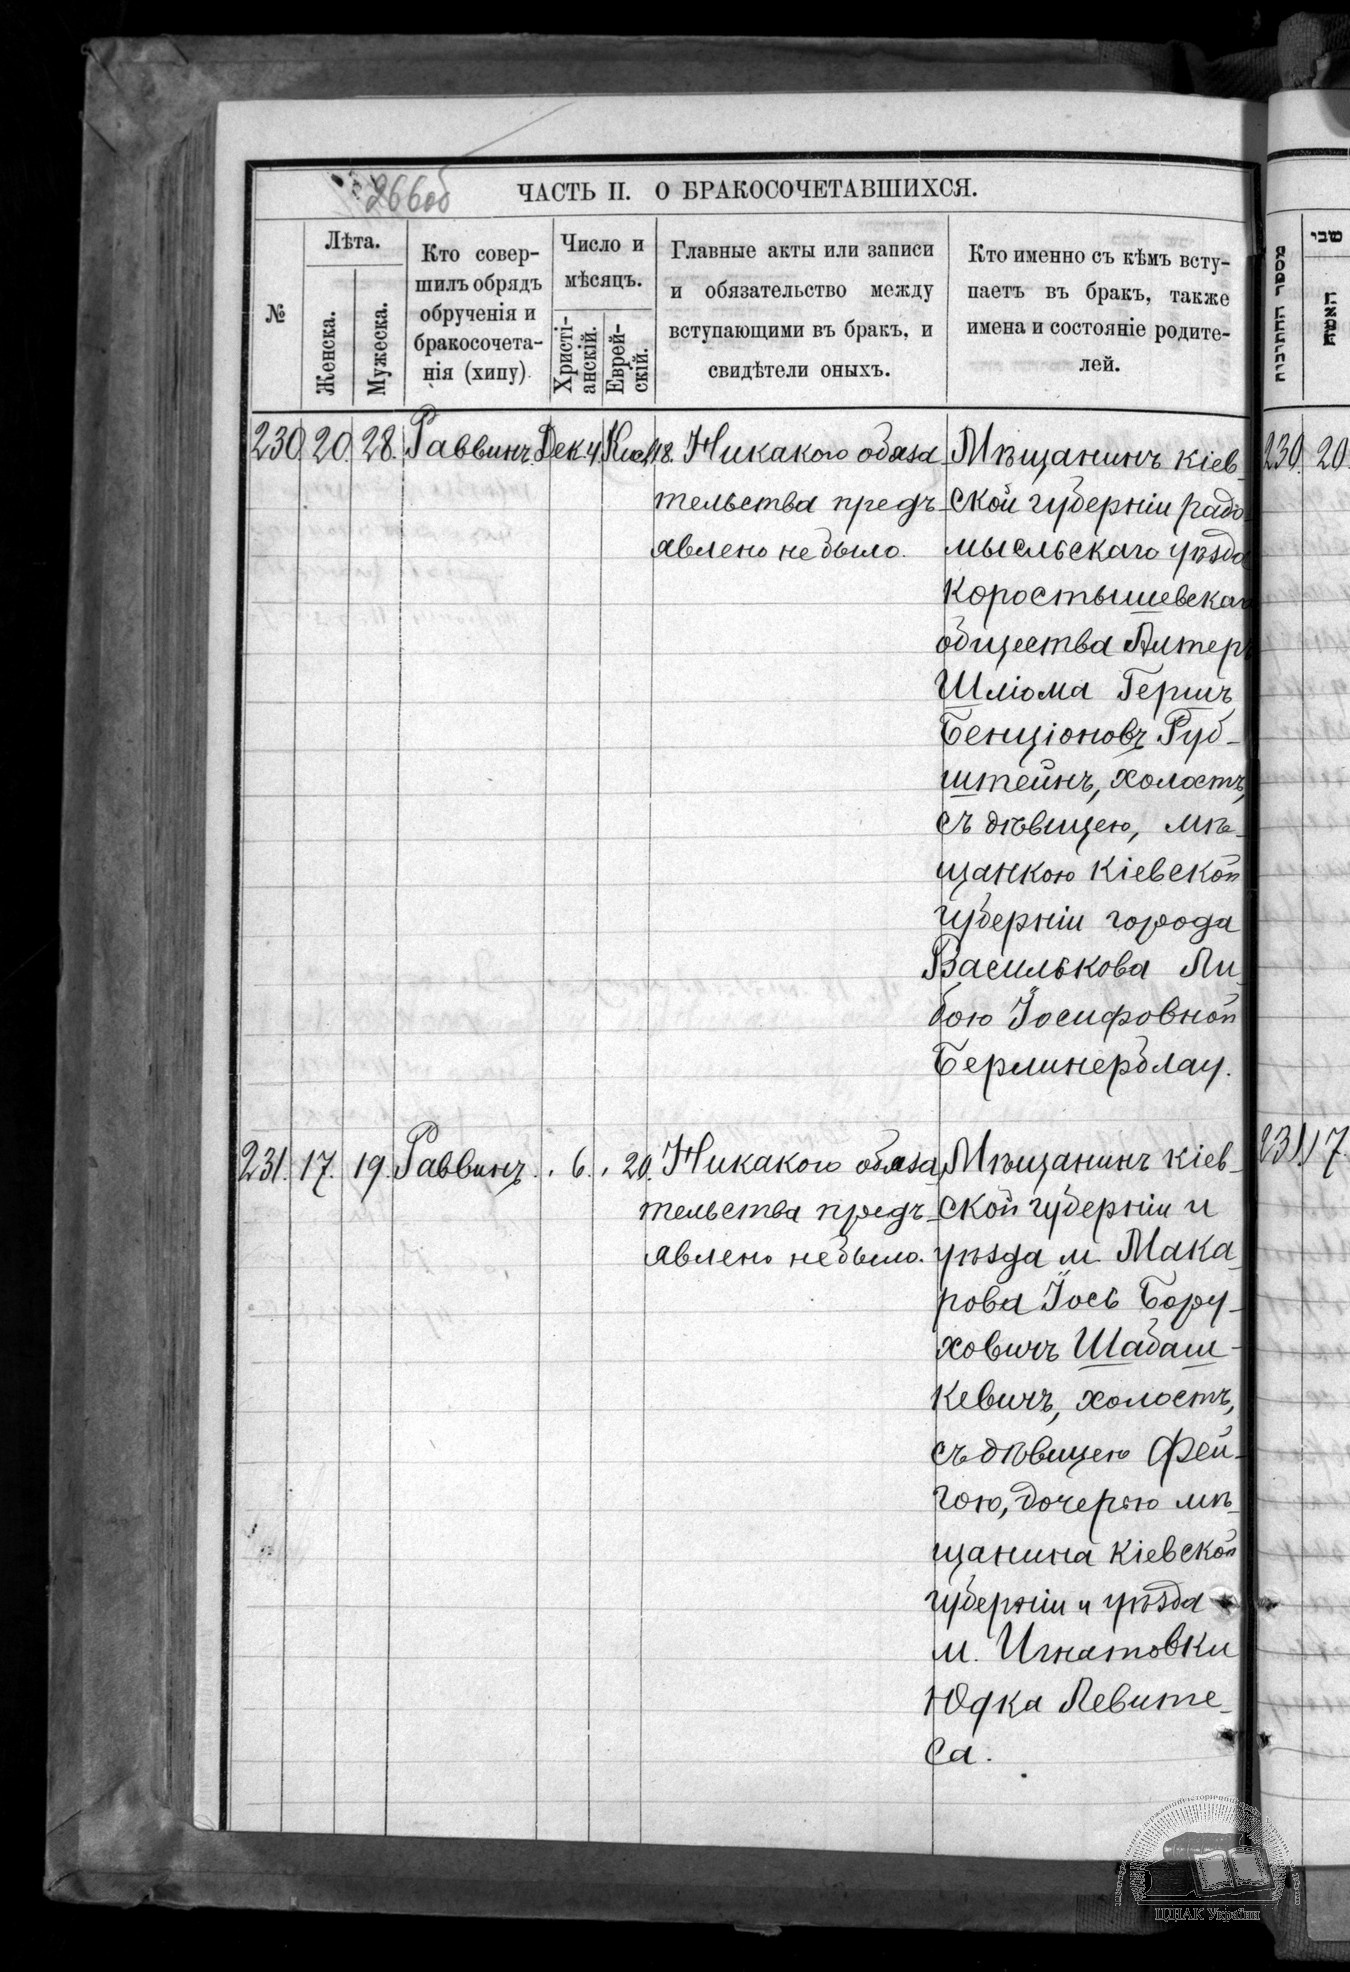 266об
ЧАСТЬ II. О БРАКОСОЧЕТАВШИХСЯ.
№
Лѣта.
Женска.
Мужеска.
Кто совер-
шилъ обрядъ
обрученія и
бракосочета-
нія (хипу).
Число и
мѣсяцъ.
Христі-
анскій.
Еврей-
скій.
Главные акты или записи
и обязательство между
вступающими въ бракъ, и
свидѣтели оныхъ.
Кто именно съ кѣмъ всту-
паетъ въ бракъ, также
имена и состояніе родите-
лей.
230. 20. 28. Раввинъ. Дек. 4. 18. Никакого обяза
тельства предъ-
явлено не было.
Мѣщанинъ Кіев-
ской губерніи радо-
мысльскаго уѣзда
Коростышевскаго
общества Алтеръ
Шліома Гершъ
Бенціоновъ Руб-
штейнъ, холостъ,
съ дѣвицею, мѣ-
щанкою Кіевской
губерніи города
Василькова Ли-
бою Іосифовной
Берлинерблау.
231. 17. 19. Раввинъ. " 6. " 20. Никакого обяза
тельства предъ-
явлено не было.
Мѣщанинъ Кіев-
ской губерніи и
уѣзда м. Мака-
рова Іось Бору-
ховичъ Шабаш-
кевичъ, холостъ,
съ дѣвицею Фей-
гою, дочерью мѣ-
щанина Кіевской
губерніи и уѣзда
м. Игнатовки
Юдка Левите-
са.
מספר החתונה
שני
האשה
230. 20.
231. 17.
ЦДІАК України